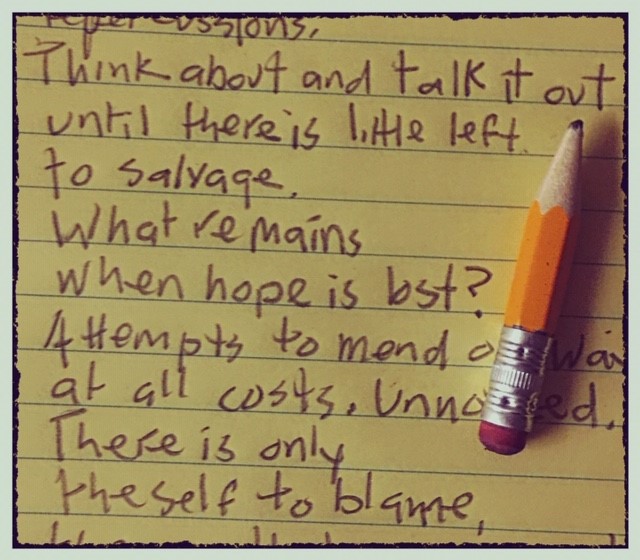 repercussions.
Think about and talk it out
until there is little left
to salvage.
What remains
when hope is lost?
Attempts to mend
at all costs.
There is only
the self to blame,